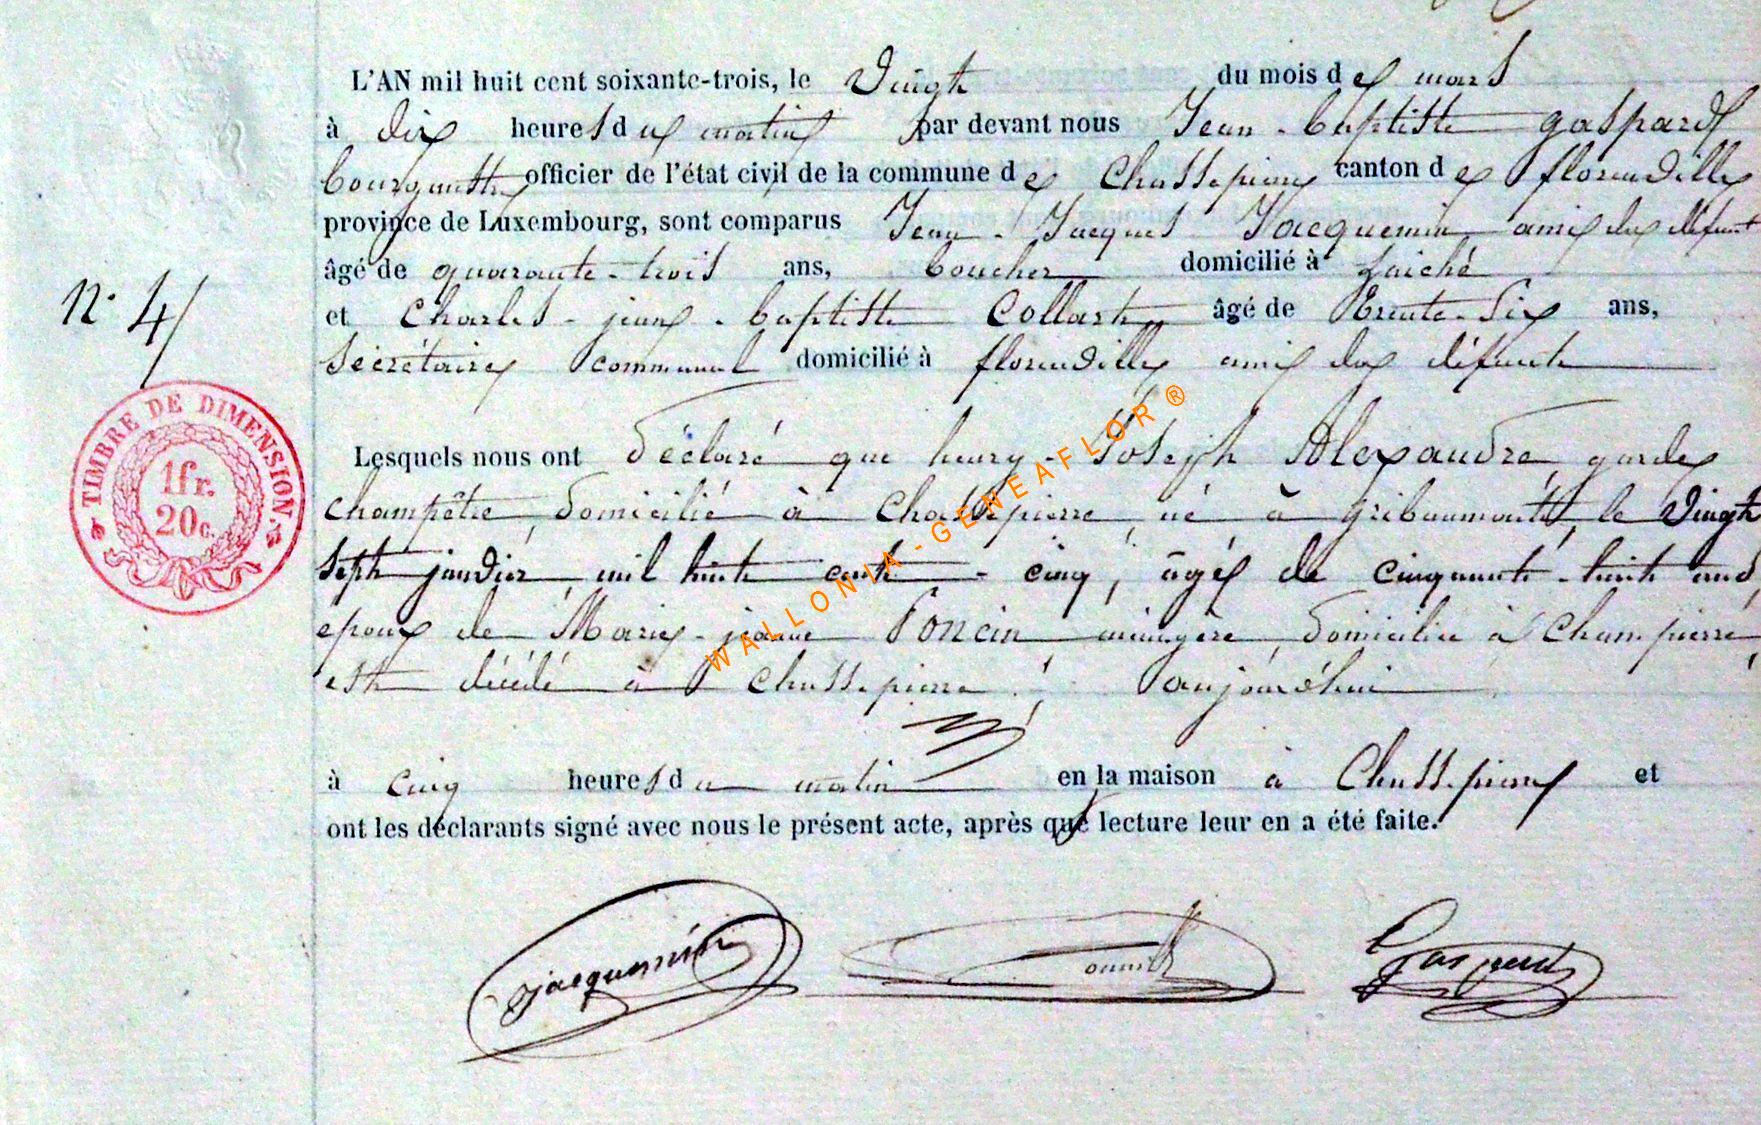 L'AN mil huit cent soixante-trois, le vingt du mois de mars
à dix heures du matin par devant nous Jean-baptiste gaspard
bourgmestre officier de l'état civil de la commune de Chassepierre canton de florenville
province de Luxembourg, sont comparus Jean-Jacques Jacquemin ami du défunt
âgé de quarante-trois ans, boucher domicilié à Laiche
et Charles-jean-baptiste Collart âgé de trente-six ans,
N° 4
secrétaire communal domicilié à florenville ami du défunt
TIMBRE DE DIMENSION.
1fr.
20c.
Lesquels nous ont déclaré que henry-Joseph Alexandre, garde
champêtre, domicilié à Chassepierre, né à gribaumont, le vingt
sept janvier mil huit cent-cinq, âgé de cinquante-huit ans,
epoux de Marie-jeanne Poncin, ménagère, domiciliée à Chassepierre,
est décédé à Chassepierre, aujourd'hui
à cinq heures du matin en la maison à Chassepierre et
ont les déclarants signé avec nous le présent acte, après que lecture leur en a été faite.
Jacquemin Gaspard
WALLONIA-GENEAFLOR®